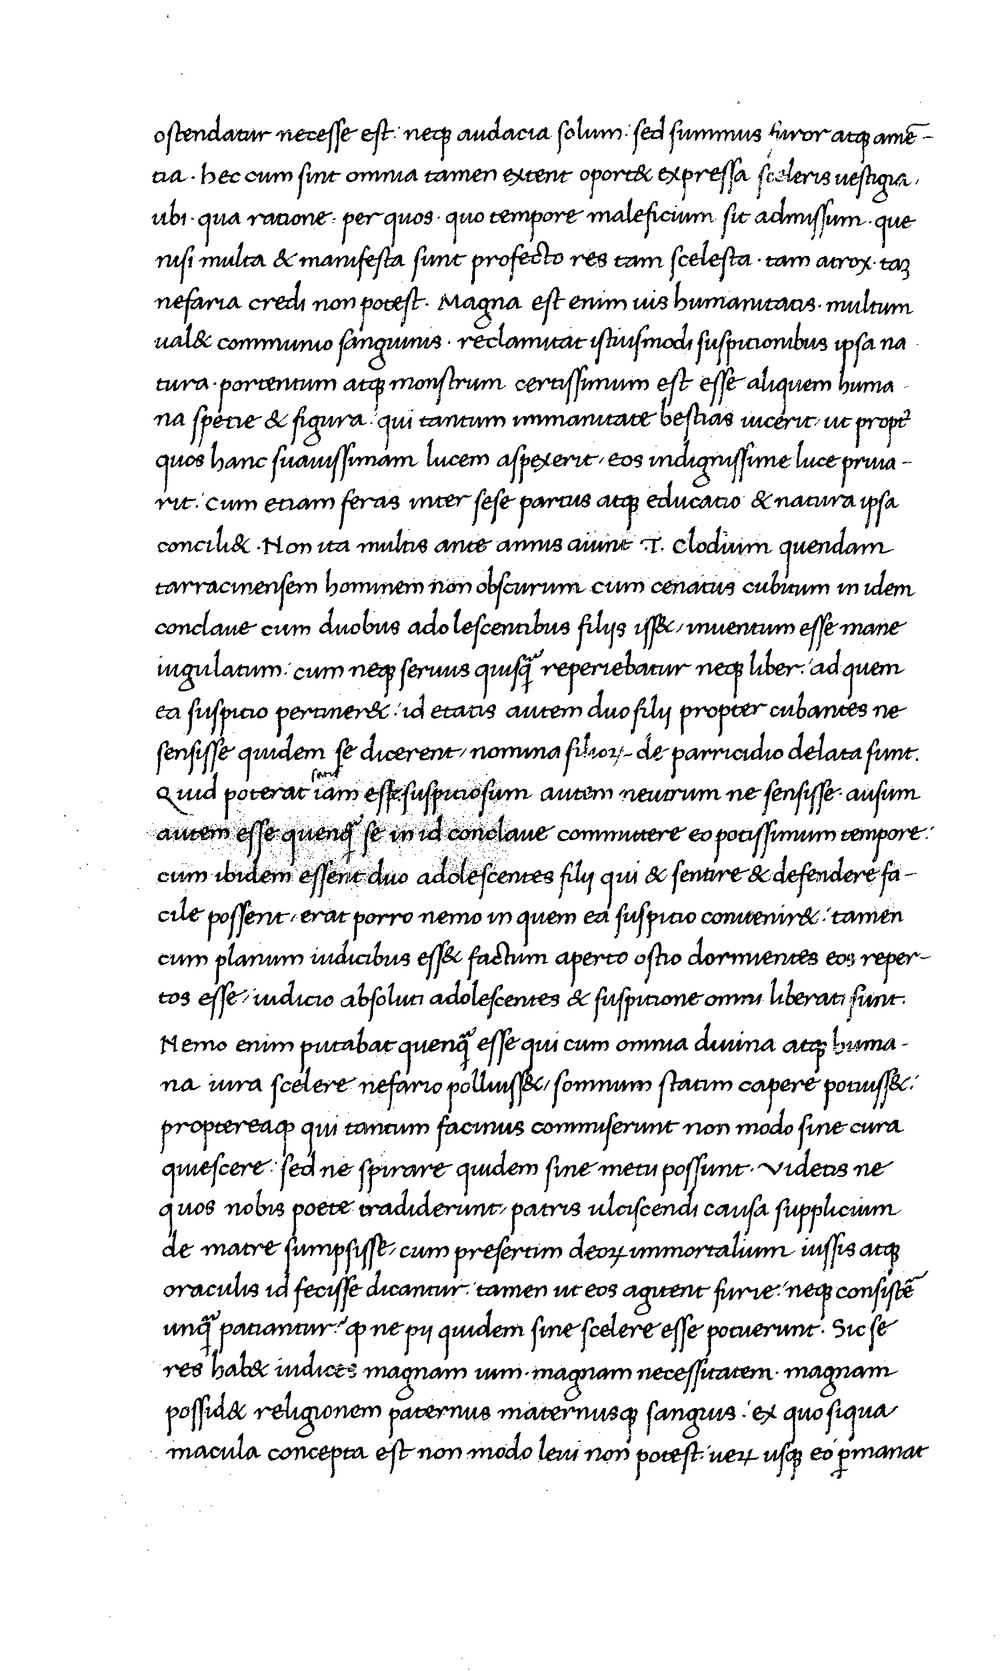 ostendatur necesse est: neqꝫ audacia solum: sed summus furor atqꝫ amē-
tia · hec cum sint omnia tamen extent oport& expressa sceleris uestigia,
ubi · qua ratione: per quos · quo tempore maleficium sit admissum · que
nisi multa & manifesta sunt profecto res tam scelesta · tam atrox · taꝫ
nefaria credi non potest · Magna est enim uis humanitatis · multum
ual& communio sanguinis · reclamitat istiusmodi suspitionibus ipsa na
tura · portentum atqꝫ monstrum certissimum est esse aliquem huma
na spetie & figura: qui tantum immanitate bestias uicerit, ut propt᷒
quos hanc suauissimam lucem aspexerit, eos indignissime luce priua-
rit: Cum etiam feras inter sese partus atqꝫ educatio & natura ipsa
concili& · Non ita multis ante annis aiunt .T. Clodium quendam
tarracinensem hominem non obscurum cum cenatus cubitum in idem
conclaue cum duobus adolescentibus filijs iss&, inuentum esse mane
iugulatum: cum neqꝫ seruus quisqᷓ reperiebatur neqꝫ liber: ad quem
ea suspitio pertiner&: id etatis autem duo filij propter cubantes ne
sensisse quidem se dicerent, nomina filioꝝ- de parricidio delata sunt.
Quid poterat iam esse suspitiosum autem neutrum ne sensisse · ausum
autem esse quenqᷓ se in id conclaue committere eo potissimum tempore:
cum ibidem essent duo adolescentes filij qui & sentire & defendere fa-
cile possent, erat porro nemo in quem ea suspitio conuenir&: tamen
cum planum iudicibus ess& factum aperto ostio dormientes eos reper-
tos esse, iudicio absoluti adolescentes & suspitione omni liberati sunt.
Nemo enim putabat quenqᷓ esse qui cum omnia diuina atqꝫ huma-
na iura scelere nefario polluiss&, somnum statim capere potuiss&:
propterea ꝙ qui tantum facinus commiserunt non modo sine cura
quiescere: sed ne spirare quidem sine metu possunt · Videtis ne
quos nobis poete tradiderunt, patris ulciscendi causa supplicium
de matre sumpsisse, cum presertim deoꝝ immortalium iussis atqꝫ
oraculis id fecisse dicantur: tamen ut eos agitent furie: neqꝫ consistē
unqᷓ patiantur: ꝙ ne pij quidem sine scelere esse potuerunt · Sic se
res hab& iudices magnam uim · magnam necessitatem · magnam
possid& religionem paternus maternusqꝫ sanguis: ex quo siqua
macula concepta est non modo leui non potest: ueꝝ usqꝫ eo ꝑmanat